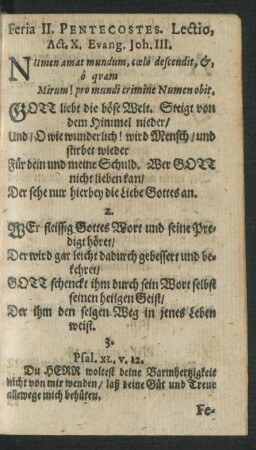 Feria II. PENTECOSTES. Lectio,
Act. X. Evang. Joh. III.
NUmen amat mundum, cœlô descendit, &, ô quam
Mirum! pro mundi crimine Numen obit.
GOTT liebt die böse Welt. Steigt von
dem Himmel nieder/
Und/ O wie wunderlich! wird Mensch/ und
stirbet wieder
Für dein und meine Schuld. Wer GOTT
nicht lieben kan/
Der sehe nur hierbey die Liebe Gottes an.
2.
WEr fleissig Gottes Wort und seine Pre-
digt höret/
Der wird gar leicht dadurch gebessert und be-
kehret/
GOTT schenckt ihm durch sein Wort selbst
seinen heilgen Geist/
Der ihm den selgen Weg in jenes Leben
weist.
3.
Psal. XL. v. 12.
Du HERR woltest deine Barmhertzigkeit
nicht von mir wenden/ laß deine Güt und Treue
allewege mich behüten.
Fe-